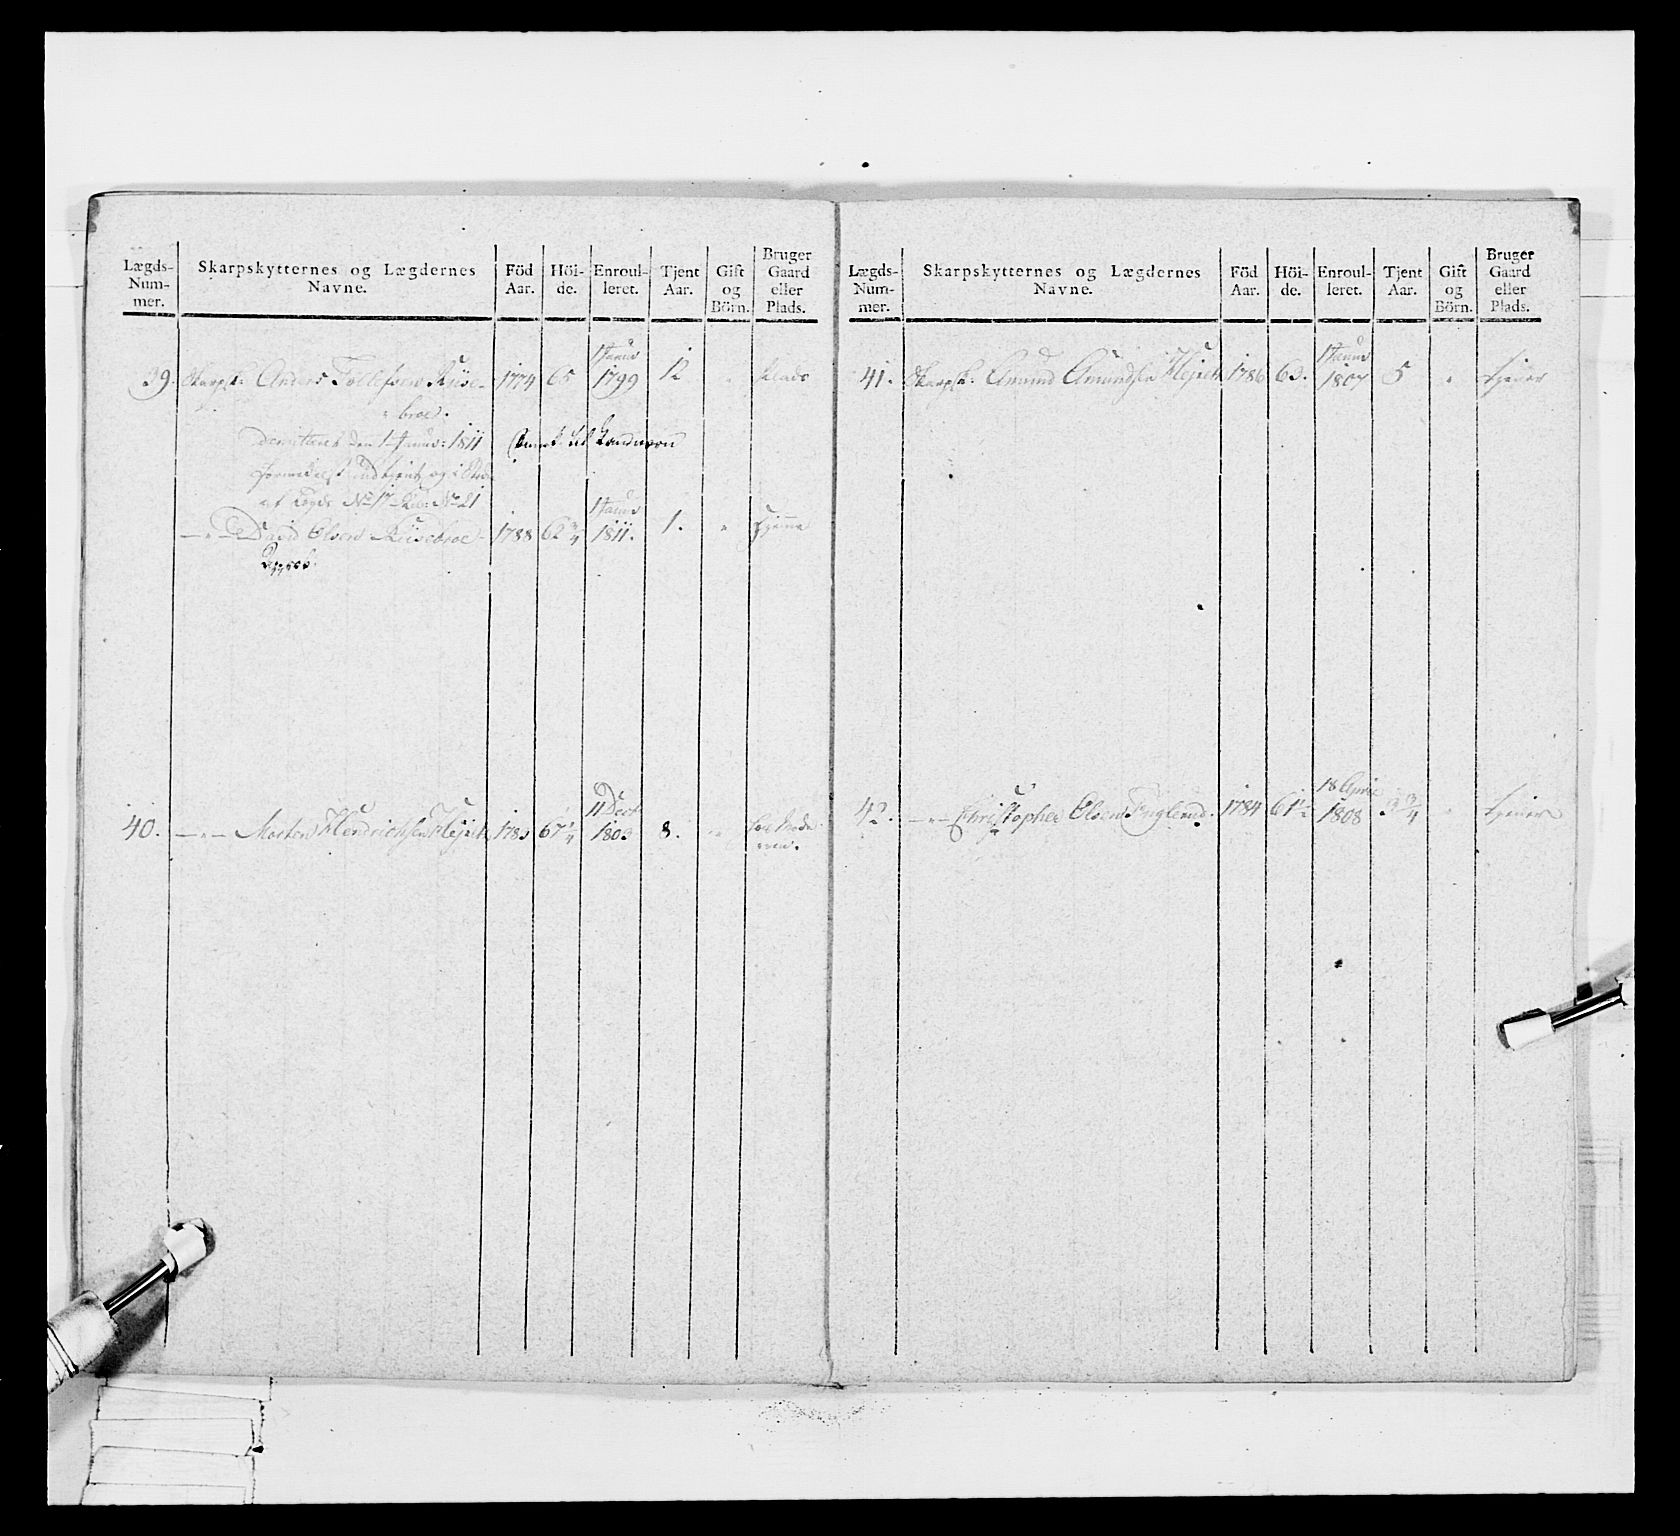 Lægds- Num- mer.
Skarpskytternes og Lægdernes Navne.
Föd Aar.
Höi- de.
Enroul- leret.
Tjent Aar.
Gift og Börn.
Bruger Gaard eller Plads.
39. Skarpsk: Anders Tollefsen Riise- 1774 65 1 Janua 1799 12 " Plads
broe.
den 1 Janua: 1811
og i Sted
af Lægde No 17 No 21
— " — David Olsen Riisebroe 1788 62 3/4 1 Janua 1811. 1. " tjener
40. — " — Morten Hendrichsen 67 1/4 11 Decb 1803 8. "
Lægds- Num- mer.
Skarpskytternes og Lægdernes Navne.
Föd Aar.
Höi- de.
Enroul- leret.
Tjent Aar.
Gift og Börn.
Bruger Gaard eller Plads.
41. Skarpsk: Amund Amundsen 1786 63. 1 Janua 1807 5 " tjener
42. — " — Christopher Olsen Fuglerud. 1784 61 1/2 18 April 1808 3 3/4 " tjener